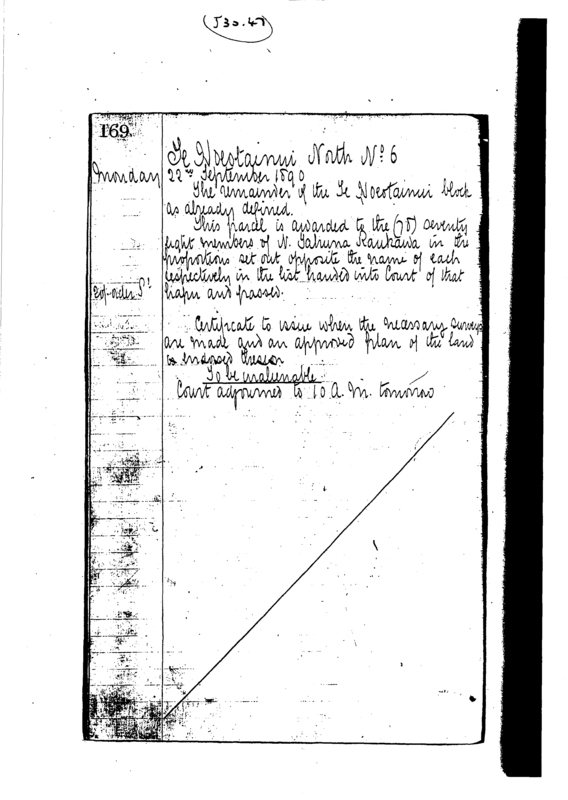 (J30.47)
169.
Te Hoeotainui North No 6
Monday
22nd September 1890
The remainder of the Te Hoeotainui block
as already defined.
This parcel is awarded to the (78) seventy
eight members of N. Tahuna Raukawa in the
proportions set out opposite the name of each
respectively in the list handed into Court of that
hapu and passed.
Certificate to issue when the necessary surveys
are made and an approved plan of the land
is endorsed thereon
To be inalienable
Court adjourned to 10 A.M. tomorrow